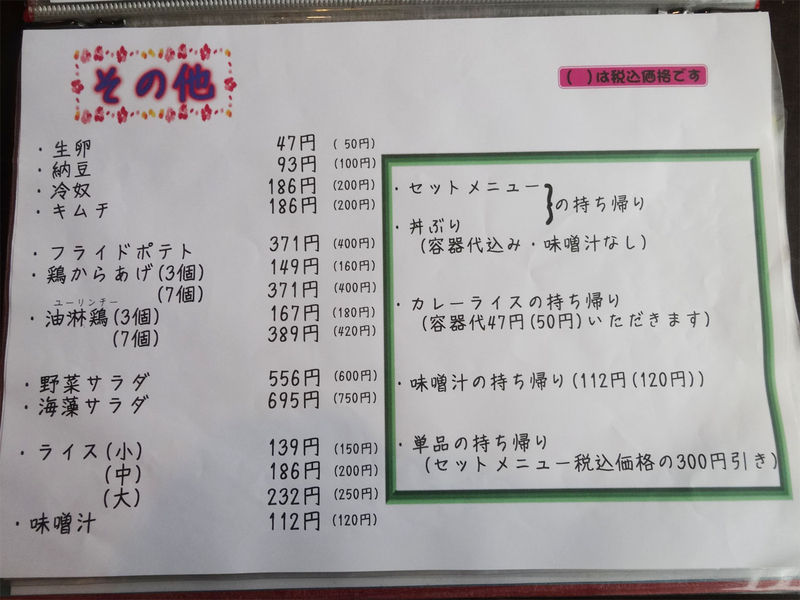 その他
( )は税込価格です
・生卵 47円 (50円)
・納豆 93円 (100円)
・冷奴 186円 (200円)
・キムチ 186円 (200円)
・フライドポテト 371円 (400円)
・鶏からあげ(3個) 149円 (160円)
(7個) 371円 (400円)
ユーリンチー
・油淋鶏(3個) 167円 (180円)
(7個) 389円 (420円)
・野菜サラダ 556円 (600円)
・海藻サラダ 695円 (750円)
・ライス(小) 139円 (150円)
(中) 186円 (200円)
(大) 232円 (250円)
・味噌汁 112円 (120円)
・セットメニュー
・丼ぶり
}の持ち帰り
(容器代込み・味噌汁なし)
・カレーライスの持ち帰り
(容器代47円(50円)いただきます)
・味噌汁の持ち帰り(112円(120円))
・単品の持ち帰り
(セットメニュー税込価格の300円引き)